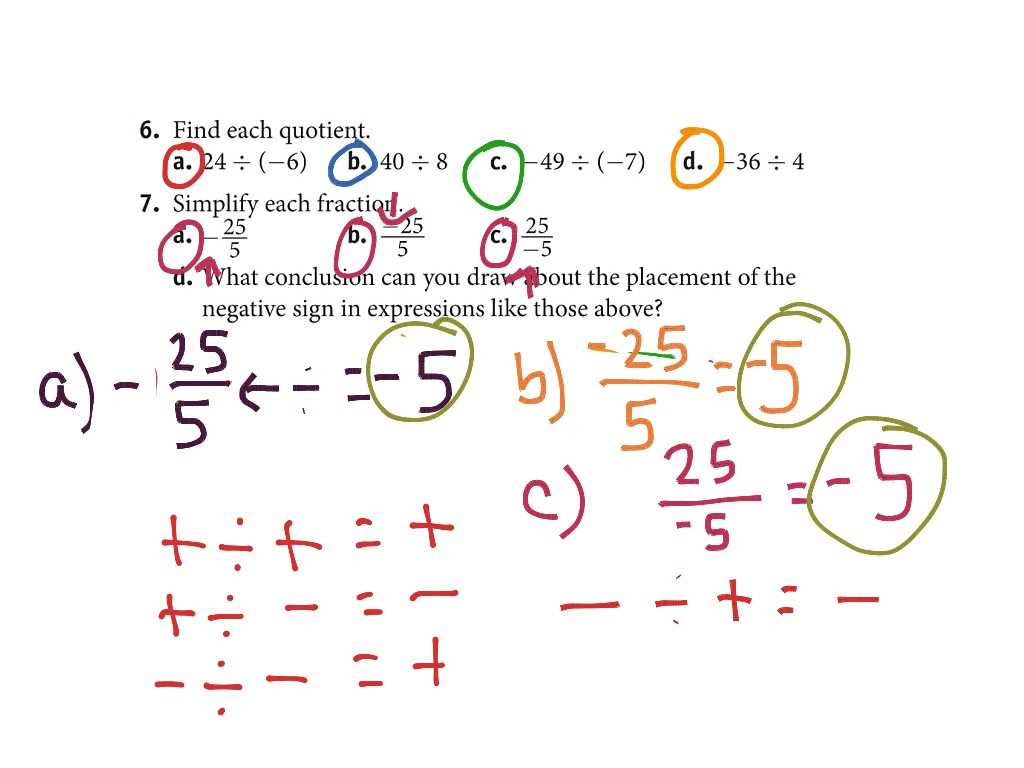 6. Find each quotient.
a. 24 ÷ (−6) b. 40 ÷ 8 c. −49 ÷ (−7) d. −36 ÷ 4
7. Simplify each fraction.
a. −25/5 b. −25/5 c. 25/−5
d. What conclusion can you draw about the placement of the
negative sign in expressions like those above?
a) − 25/5 ← ÷ = −5 b) −25/5 = −5
c) 25/−5 = −5
+ ÷ + = +
+ ÷ − = − − ÷ + = −
− ÷ − = +